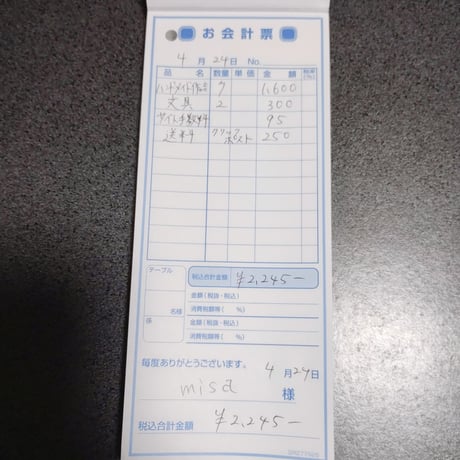 お会計票
4月24日 No.
品名 数量 単価 金額 税率(%)
ハンドメイド作品 7 1,600
文具 2 300
サイト手数料 95
送料 クリックポスト 250
テーブル 税込合計金額 ¥2,245-
金額(税抜・税込)
名様 消費税額等( %)
係 金額(税抜・税込)
消費税額等( %)
毎度ありがとうございます。 4月24日
misa 様
税込合計金額 ¥2,245-